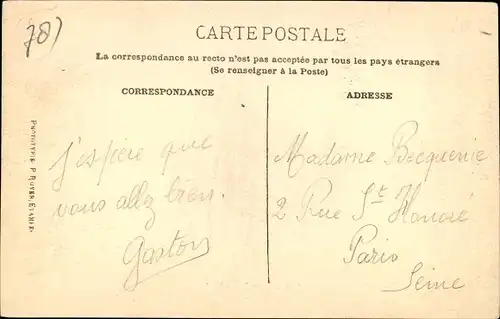 78)
CARTE POSTALE
La correspondance au recto n'est pas acceptée par tous les pays étrangers
(Se renseigner à la Poste)
CORRESPONDANCE
ADRESSE
J'espère que
vous allez bien.
Gaston
Madame Becquerie
2 Rue St Honoré
Paris
Seine
PHOTOTYPIE P. ROYER, ETAMPES